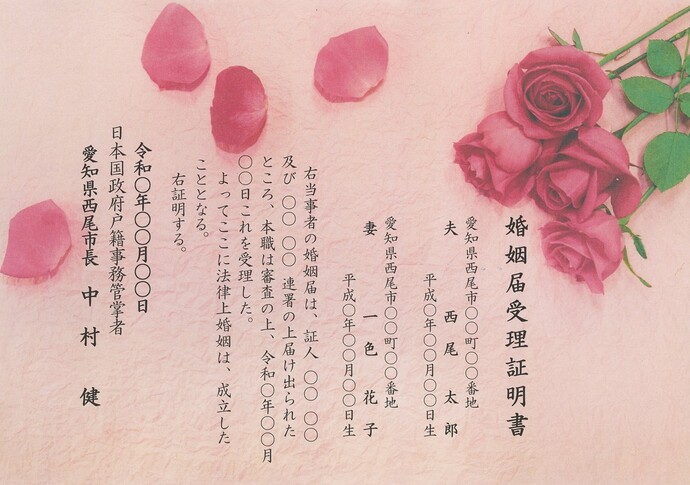 婚姻届受理証明書
愛知県西尾市〇〇町〇〇番地
夫 西尾 太郎
平成〇年〇〇月〇〇日生
愛知県西尾市〇〇町〇〇番地
妻 一色 花子
平成〇年〇〇月〇〇日生
右当事者の婚姻届は、証人 〇〇 〇〇
及び 〇〇 〇〇 連署の上届け出られた
ところ、本職は審査の上、令和〇年〇〇月
〇〇日これを受理した。
よってここに法律上婚姻は、成立した
こととなる。
右証明する。
令和〇年〇〇月〇〇日
日本国政府戸籍事務管掌者
愛知県西尾市長 中村 健